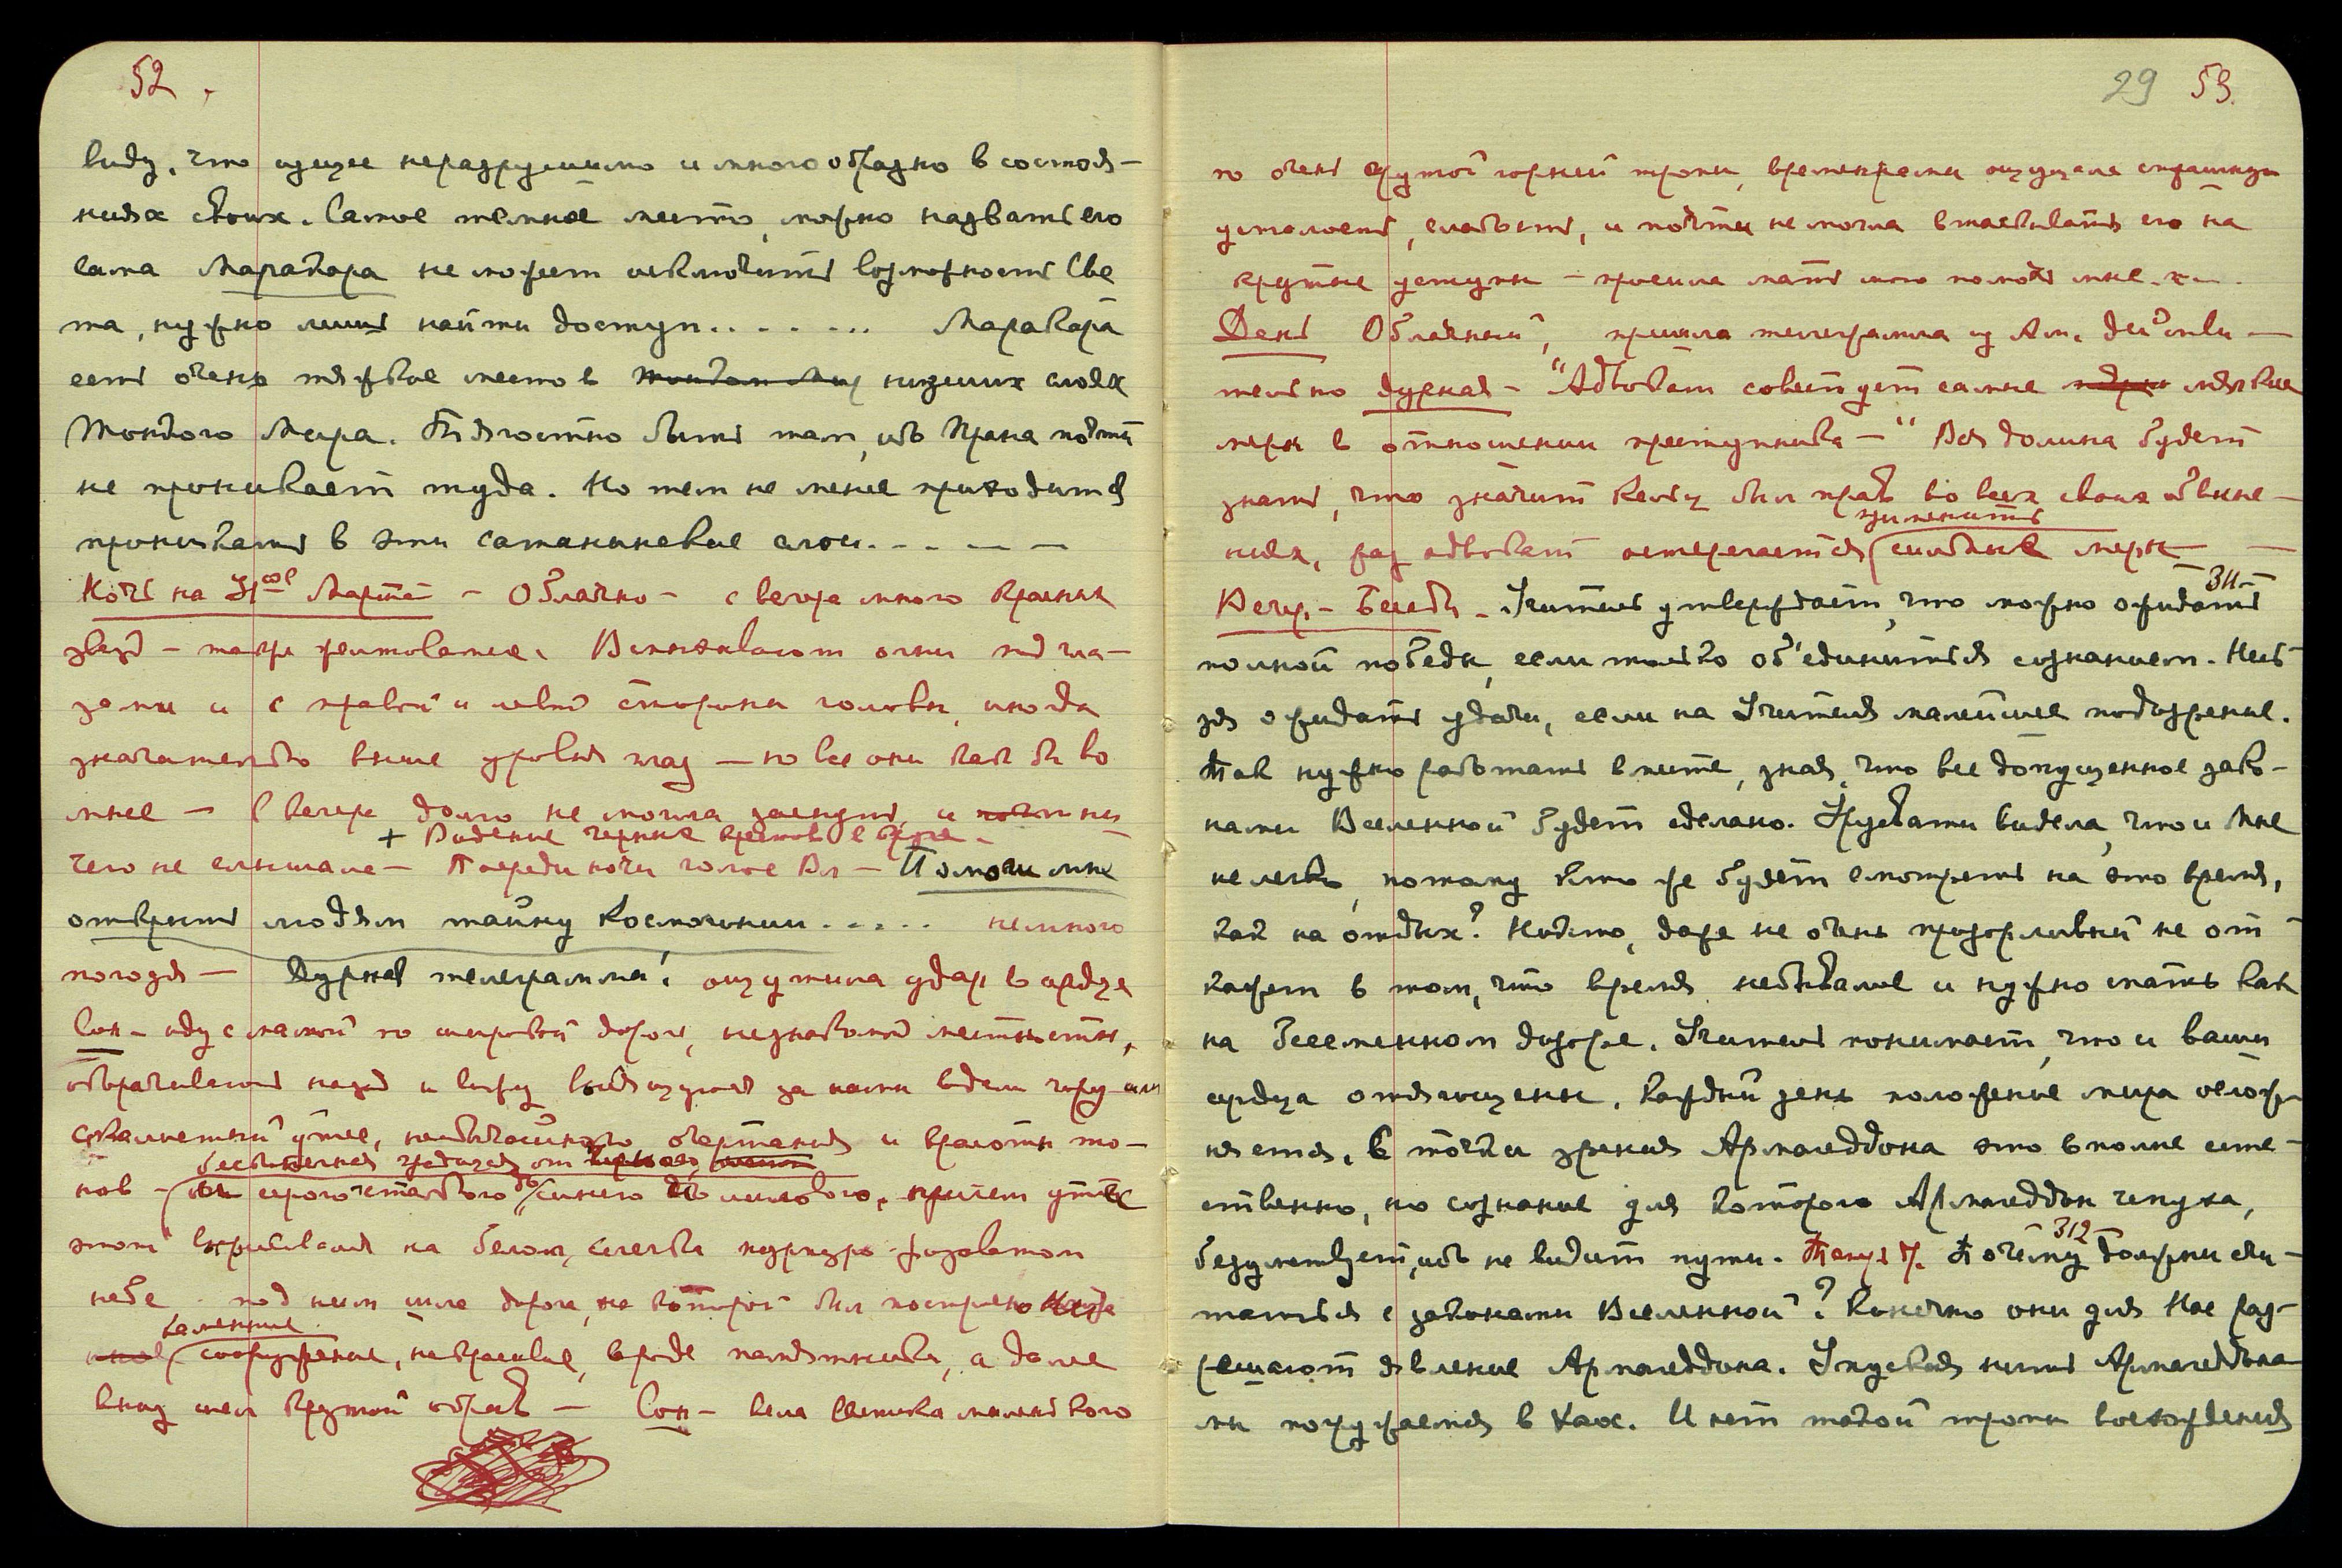 52.
виду, что сущее неразрушимо и многообразно в состоя-
ниях своих. Самое темное место, можно назвать его
сама Маракара не может исключить возможность Све
та, нужно лишь найти доступ........ Маракара
есть очень тяжкое место в низших слоях
Тонкого Мира. Тягостно быть там, ибо Прана почти
не проникает туда. Но тем не менее приходится
проникать в эти сатанинские слои.----
Ночь на 31ое Марта - Облачно - с вечера много красных
звезд - также фиолетовые. Вспыхивают огни над гла-
зами и с правой и левой стороны головы, иногда
значительно выше уровня глаз — но все они как бы во
мне — с вечера долго не могла заснуть и ни
+ Видение черных крестов в
чего не слышала — Посреди ночи голос Вл — Помоги мне
открыть людям тайну Космогонии..... немного
погодя — Дурная телеграмма! ощутила удар в сердце
Сон - иду с мамой по широкой дороге, незнакомой местности,
оборачиваюсь назад и вижу вдали гору или
скалистый утес, необычайного очертания и красоты то-
бесконечная градация от
нов - серого стального до синего лилового, причем утес
этот вырисовывался на белом, слегка пурпуро-розоватом
небе. под ним шла дорога, на которой был построено
каменные
сооружение, некрасивое, вроде памятника, а далее
вниз шел крутой обрыв — Сон - вела Светика маленького
29 53.
по очень крутой горной тропе, временами ощущала страшную
усталость, слабость, и почти не могла втаскивать его на
крутые уступы - просила мать помочь мне.
День Облачный, пришла телеграмма из Ам. действи—
тельно дурная - "Адвокат советует самые мягкие
меры в отношении преступника —" Вся долина будет
знать, что значит Кельц был прав во всех своих обвине-
применить
ниях, раз адвокат остерегается сильные меры —
311
Вечер - Беседа - Учитель утверждает, что можно ожидать
полной победы, если только об'единиться сознанием. Нель-
зя ожидать удачи, если на Учителя малейшее подозрение.
Так нужно работать в щите, зная, что все допущенное зако-
нами Вселенной будет сделано. Урусвати видела, что и Мне
не легко, потому кто же будет смотреть на это время,
как на отдых? Никто, даже не очень прозорливый не от
кажет в том, что время небывалое и нужно стать как
на бессменном дозоре. Учитель понимает, что и ваши
сердца отягощены. Каждый день положение мира ослож-
няется. С точки зрения Армагеддона это вполне есте-
ственно, но сознание для которого Армагеддон чепуха,
312
безумствует, ибо не видит пути. Почему должны счи-
таться с законами Вселенной? Конечно они для Нас раз-
решают явление Армагеддона. Упуская нить Армагеддона
мы погружаемся в Хаос. И нет такой тропы восхождения